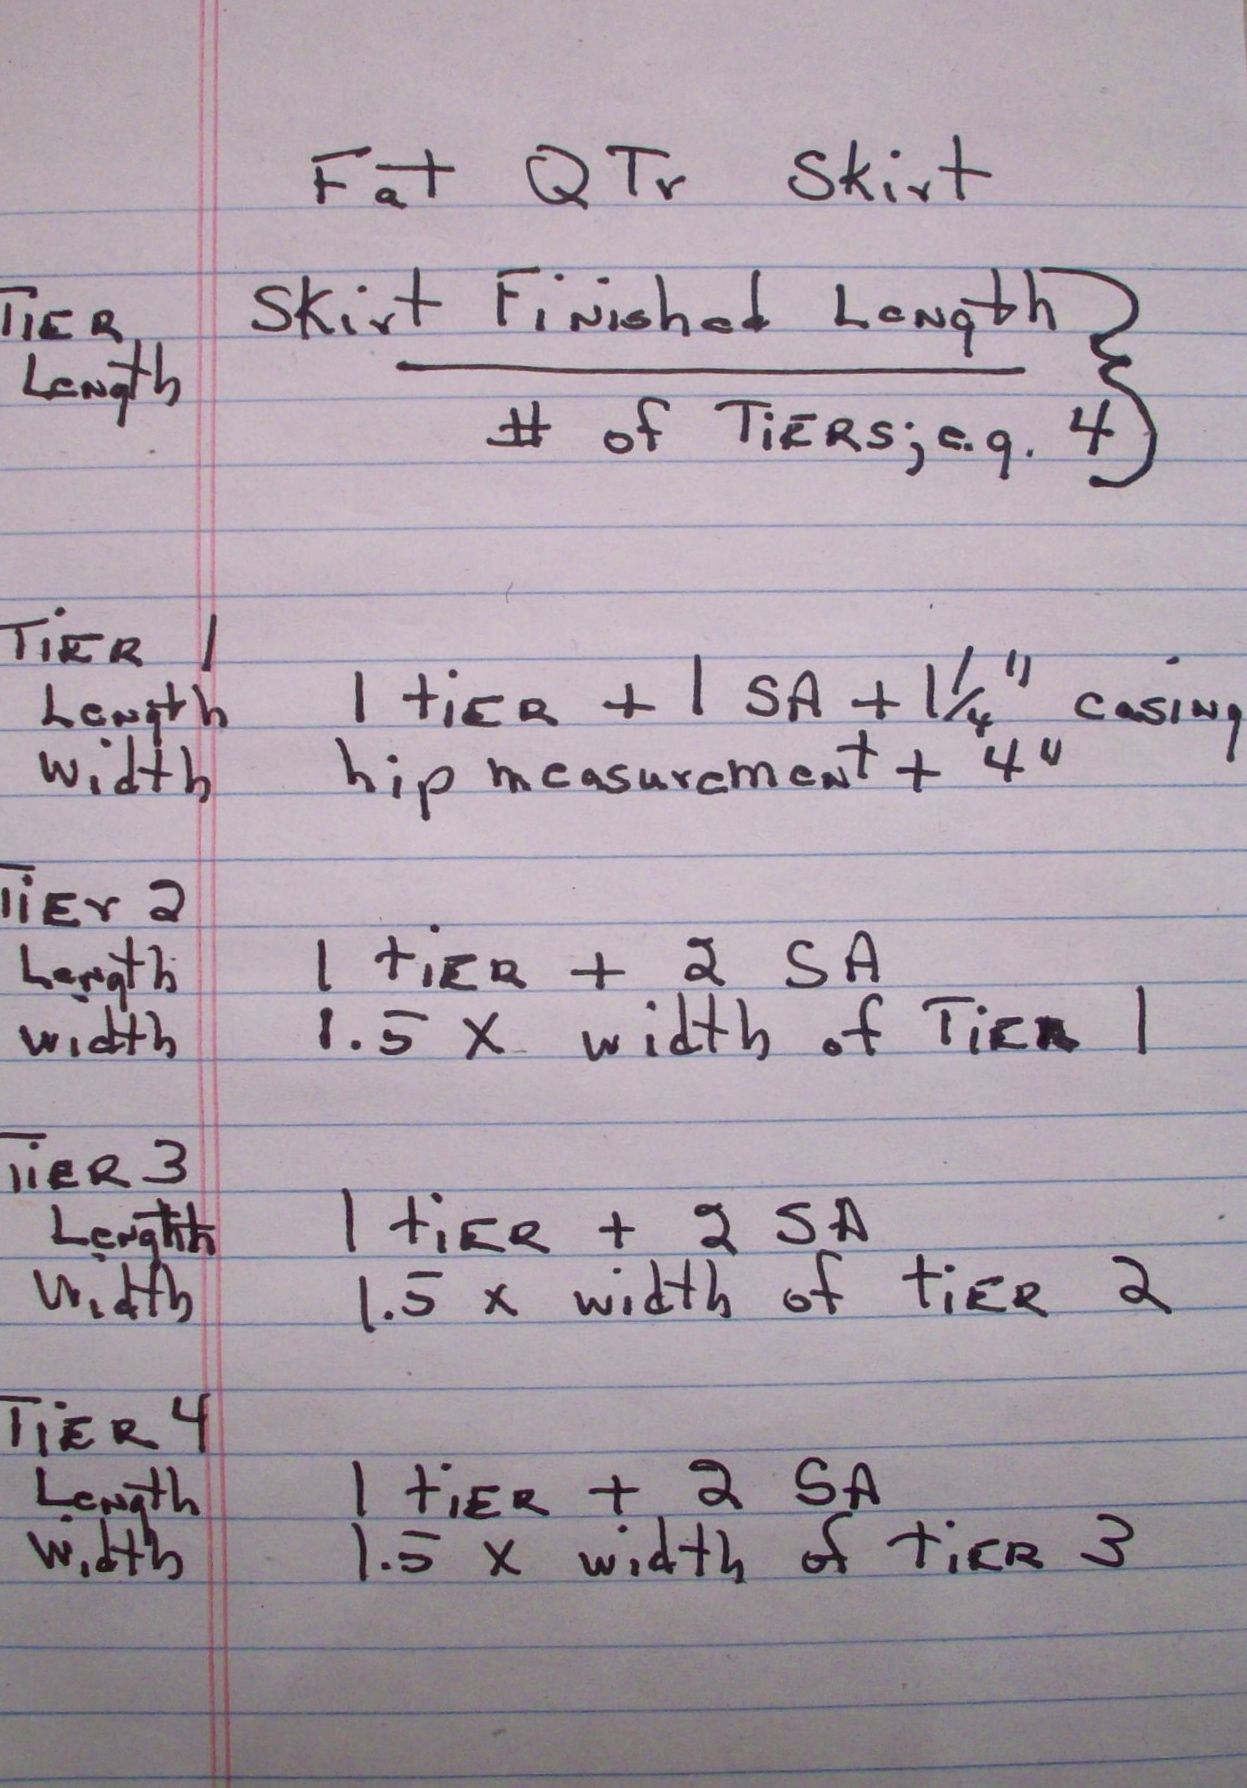 Fat QTr Skirt
TIER Skirt Finished Length
Length # of TIERS; e.g. 4
TIER 1
Length 1 tier + 1 SA + 1 1/4" casing
Width hip measurement + 4"
Tier 2
Length 1 tier + 2 SA
width 1.5 x width of Tier 1
TIER 3
Length 1 tier + 2 SA
Width 1.5 x width of tier 2
TIER 4
Length 1 tier + 2 SA
Width 1.5 x width of tier 3